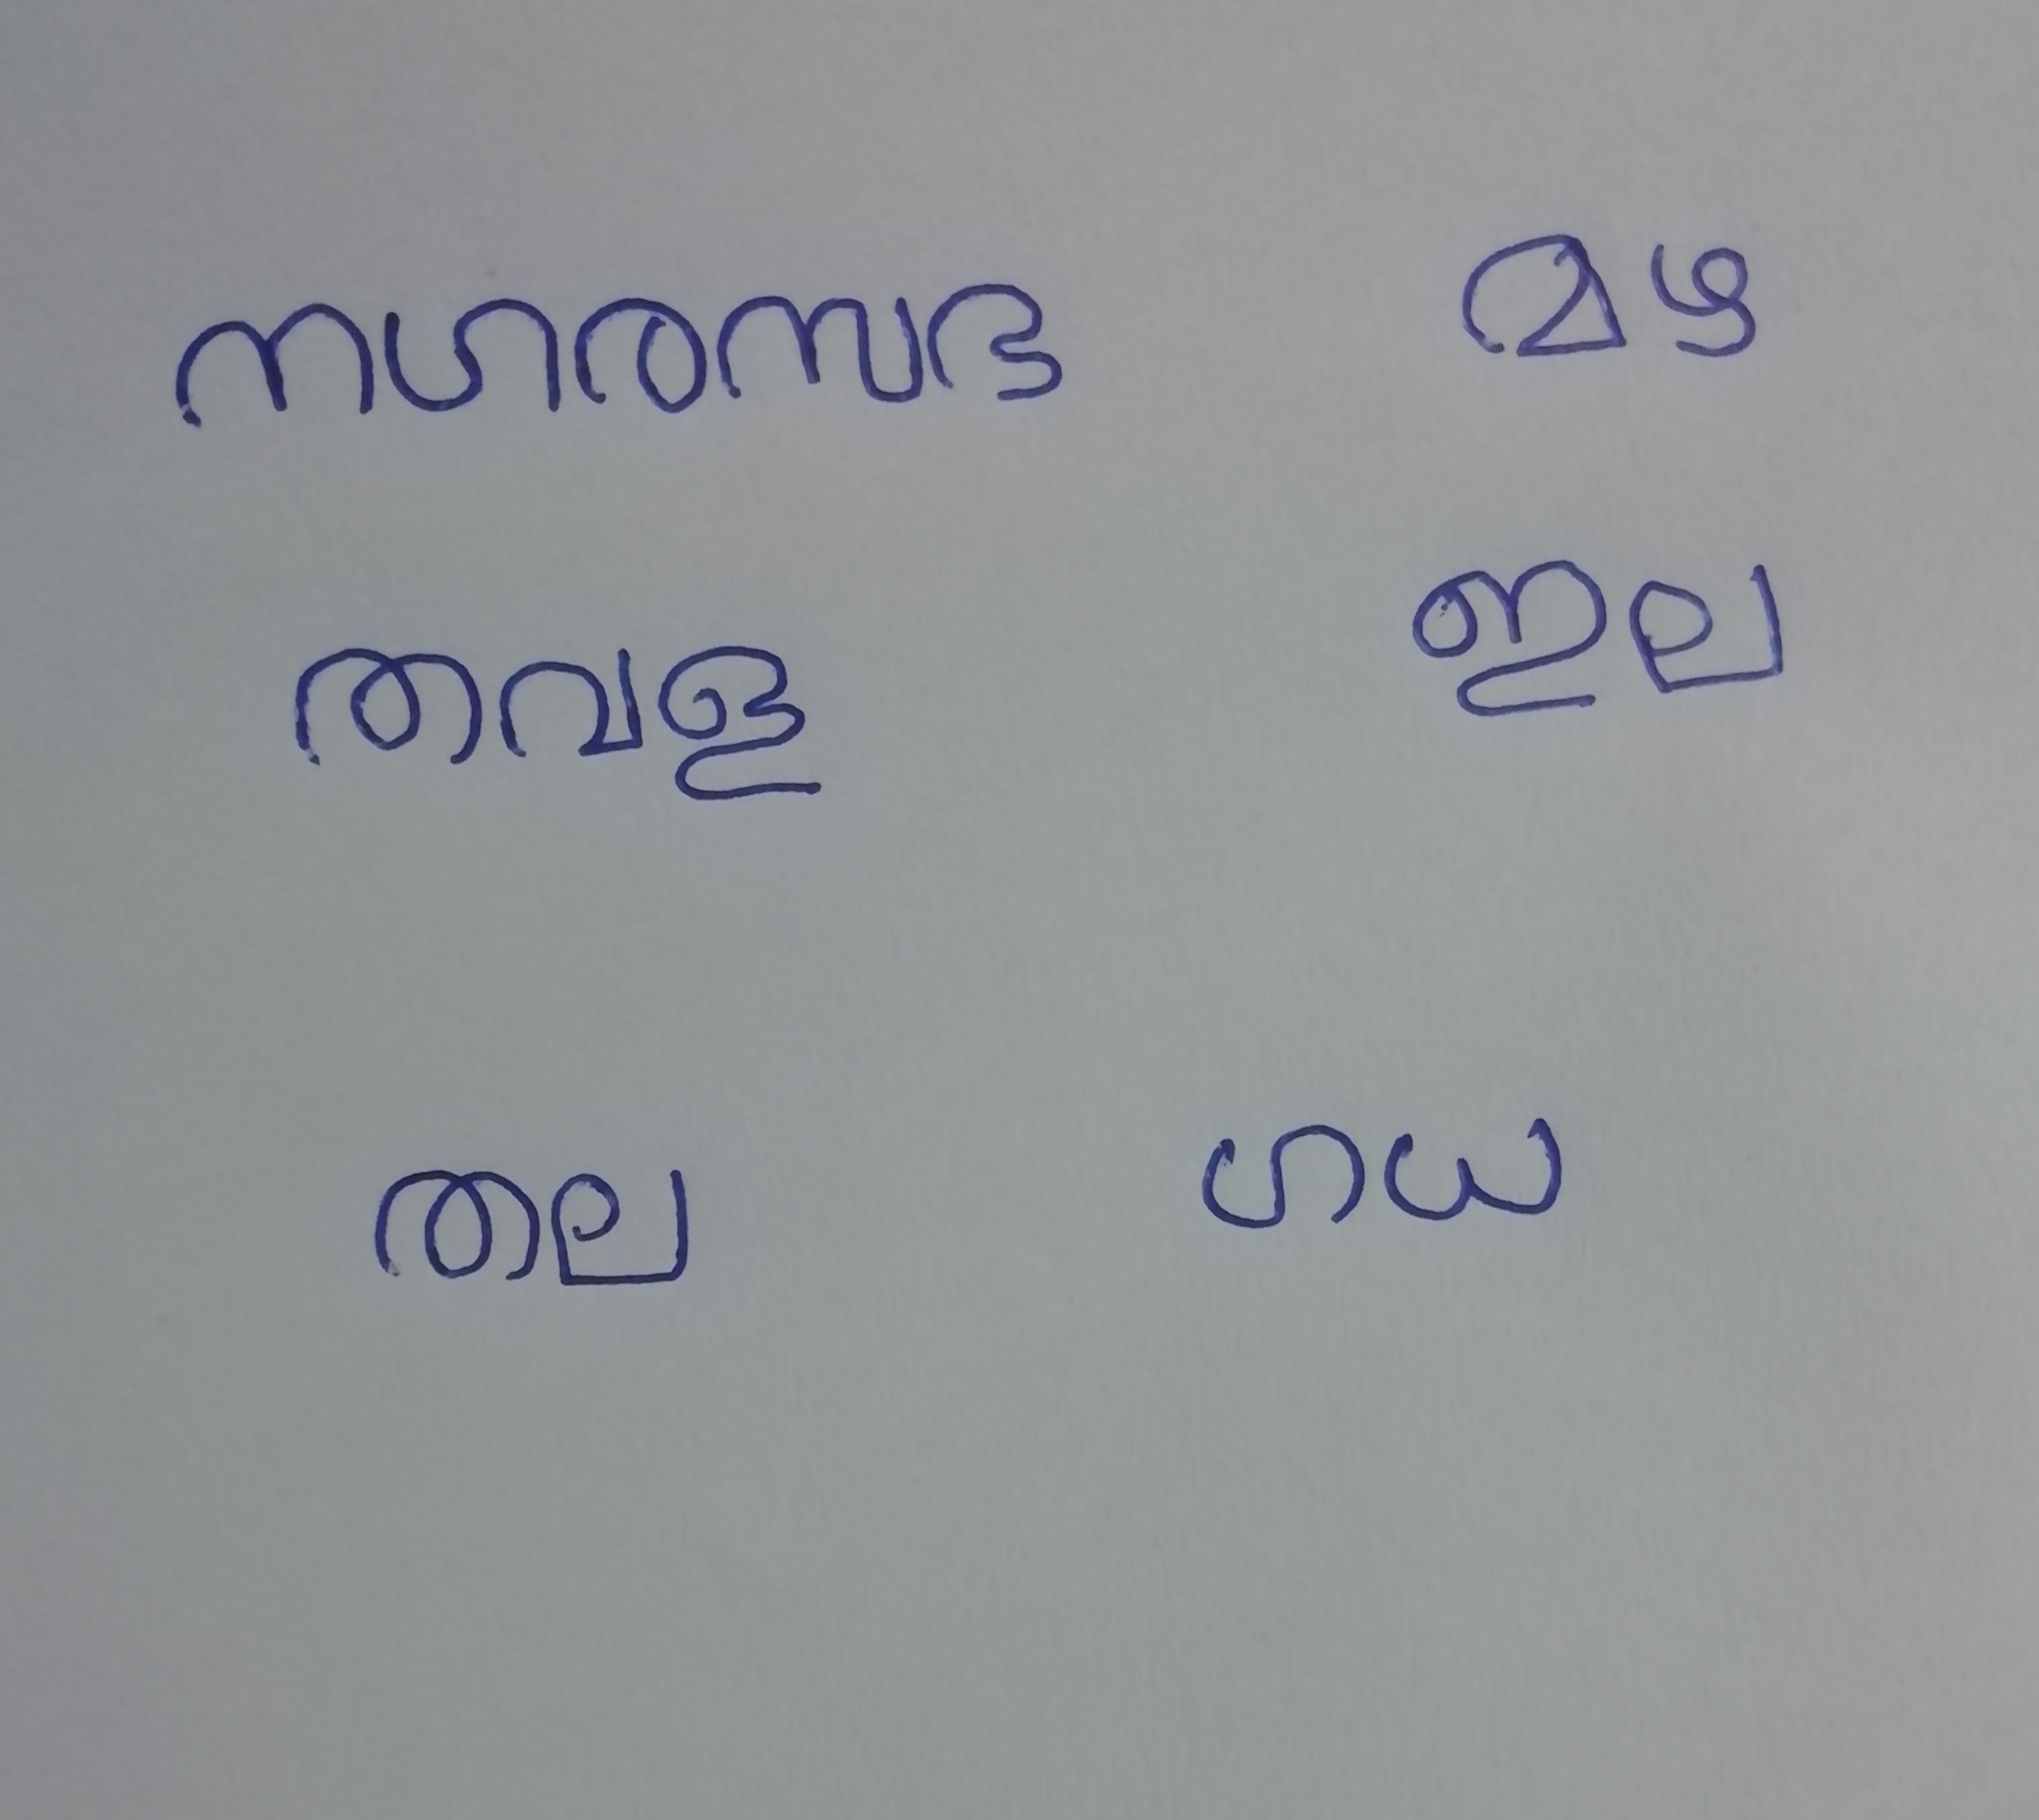 നഗരസഭ മഴ
തവള ഇല
തല ഗയ